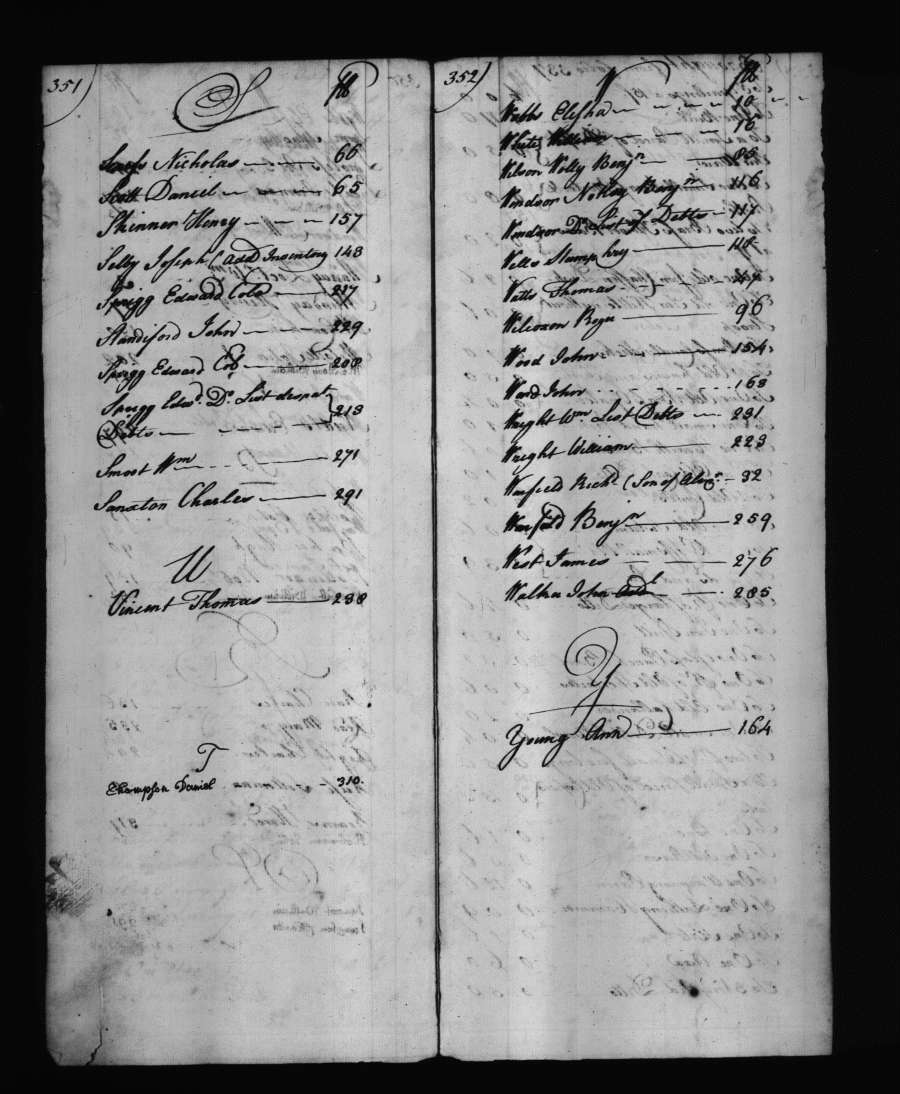 351
S
fo
Nicholas 66
Scott Daniel 65
Skinner Henry 157
Selby Joseph (Add Inventory 143
Sprigg Edward Colo 217
Standiford John 229
Sprigg Edward Col 208
Sprigg Edwd. Do. List desperate
Debts 213
Smoot Wm 271
Sanxton Charles 291
U
Vincent Thomas 238
T
Thompson Daniel 310.
352
W
fo
Webb Elisha 10
White William 16
Wilson Welly Benjn 85
Windsor Notley Benjn 116
Windsor Do. List of Debts 117
Wells Humphry 118
Watts Thomas
Wilcoxon 96
Wood John 154
Ward John 163
Wright Wm. List Debts 231
Wright William 223
Warfield Richd. (Son of Alexr. 32
Warfield Benjn 259
West James 276
Walker John Addl 285
Y
Young Ann 164